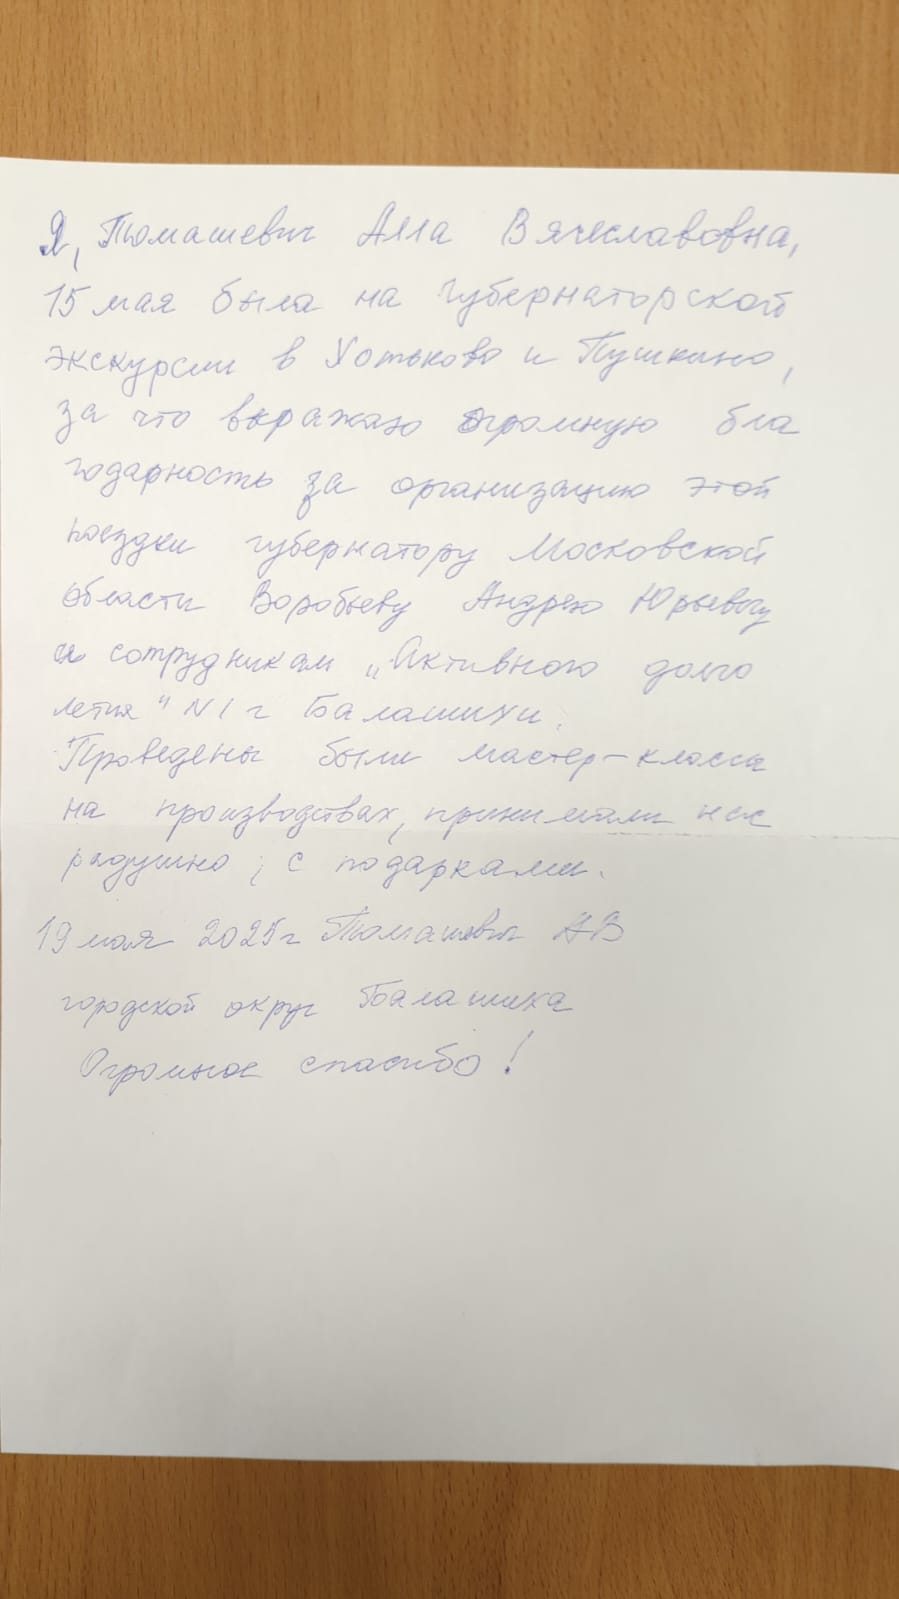 Я, Тюмашевич Алла Вячеславовна,
15 мая была на губернаторской
экскурсии в Хотьково и Пушкино,
за что выражаю огромную бла
годарность за организацию этой
поездки губернатору Московской
области Воробьеву Андрею Юрьевичу
и сотрудникам „Активного долго
летия" N 1 г Балашихи.
Проведены были мастер-классы
на производствах, принимали нас
радушно, с подарками.
19 мая 2025 г Тюмашевич АВ
городской округ Балашиха
Огромное спасибо!